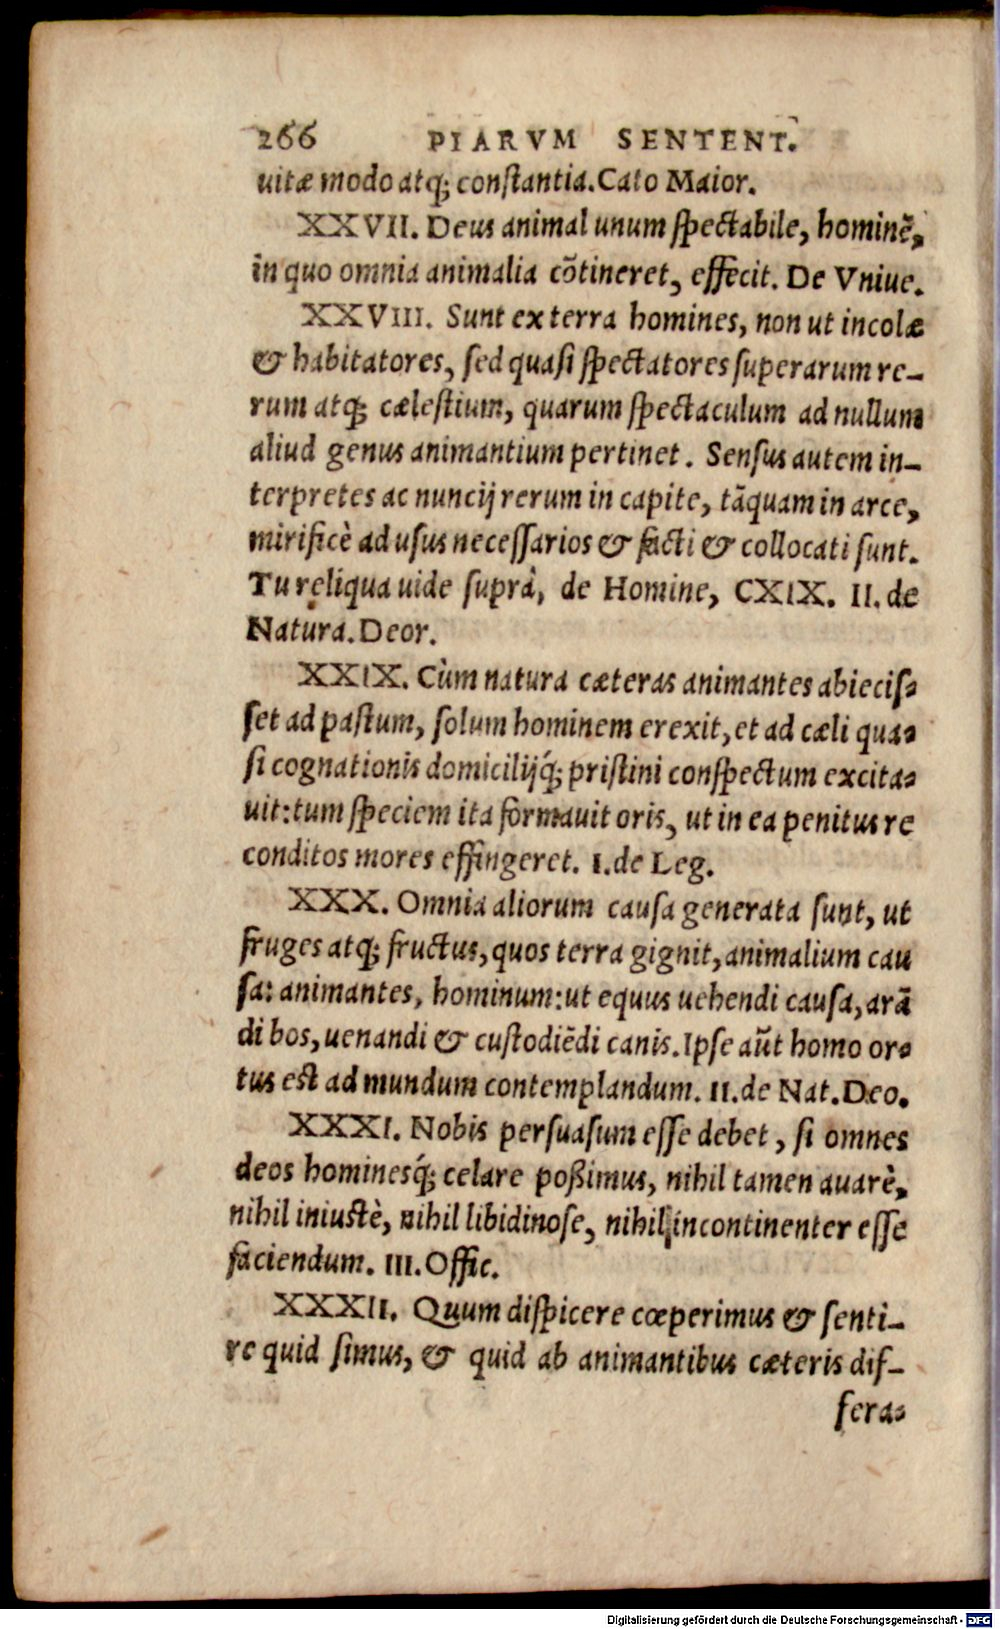 266 PIARVM SENTENT.
uitæ modo atq; conſtantia. Cato Maior.
XXVII. Deus animal unum ſpectabile, hominẽ,
in quo omnia animalia cõtineret, effecit. De Vniue.
XXVIII. Sunt ex terra homines, non ut incolæ
& habitatores, ſed quaſi ſpectatores ſuperarum re-
rum atq; cæleſtium, quarum ſpectaculum ad nullum
aliud genus animantium pertinet. Senſus autem in-
terpretes ac nuncij rerum in capite, tãquam in arce,
mirificè ad uſus neceſſarios & facti & collocati ſunt.
Tu reliqua uide ſuprà, de Homine, CXIX. II. de
Natura. Deor.
XXIX. Cùm natura cæteras animantes abieciſ-
ſet ad paſtum, ſolum hominem erexit, et ad cæli qua-
ſi cognationis domicilijq́; priſtini conſpectum excita-
uit: tum ſpeciem ita formauit oris, ut in ea penitus re
conditos mores effingeret. I. de Leg.
XXX. Omnia aliorum cauſa generata ſunt, ut
fruges atq; fructus, quos terra gignit, animalium cau
ſa: animantes, hominum: ut equus uehendi cauſa, arã
di bos, uenandi & cuſtodiẽdi canis. Ipſe aũt homo or-
tus eſt ad mundum contemplandum. II. de Nat. Deo.
XXXI. Nobis perſuaſum eſſe debet, ſi omnes
deos hominesq́; celare poßimus, nihil tamen auarè,
nihil iniuſtè, nihil libidinoſe, nihil incontinenter eſſe
faciendum. III. Offic.
XXXII. Quum diſpicere cœperimus & ſenti-
re quid ſimus, & quid ab animantibus cæteris dif-
fera-
Digitalisierung gefördert durch die Deutsche Forschungsgemeinschaft - DFG